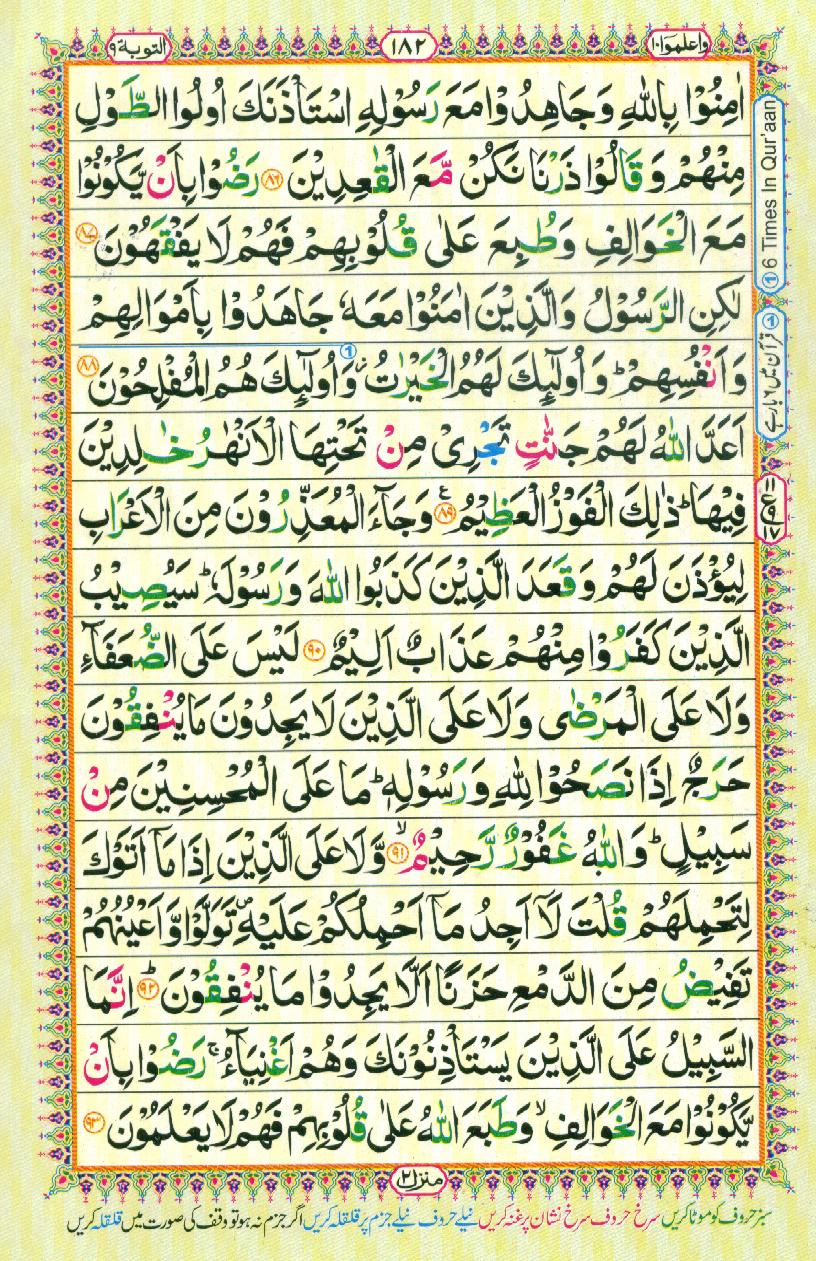 واعلموا۱۰
۱۸۲
التوبة۹
اٰمِنُوْا بِاللّٰهِ وَجَاهِدُوْا مَعَ رَسُوْلِهِ اسْتَاْذَنَكَ اُولُوا الطَّوْلِ
مِنْهُمْ وَقَالُوْا ذَرْنَا نَكُنْ مَّعَ الْقٰعِدِيْنَ ۝۸۶ رَضُوْا بِاَنْ يَّكُوْنُوْا
مَعَ الْخَوَالِفِ وَطُبِعَ عَلٰى قُلُوْبِهِمْ فَهُمْ لَا يَفْقَهُوْنَ ۝۸۷
لٰكِنِ الرَّسُوْلُ وَالَّذِيْنَ اٰمَنُوْا مَعَهٗ جَاهَدُوْا بِاَمْوَالِهِمْ
وَاَنْفُسِهِمْ ؕ وَاُولٰٓئِكَ لَهُمُ الْخَيْرٰتُ ۫ وَاُولٰٓئِكَ هُمُ الْمُفْلِحُوْنَ ۝۸۸
اَعَدَّ اللّٰهُ لَهُمْ جَنّٰتٍ تَجْرِىْ مِنْ تَحْتِهَا الْاَنْهٰرُ خٰلِدِيْنَ
فِيْهَا ؕ ذٰلِكَ الْفَوْزُ الْعَظِيْمُ ۝۸۹ وَجَآءَ الْمُعَذِّرُوْنَ مِنَ الْاَعْرَابِ
لِيُؤْذَنَ لَهُمْ وَقَعَدَ الَّذِيْنَ كَذَبُوا اللّٰهَ وَرَسُوْلَهٗ ؕ سَيُصِيْبُ
الَّذِيْنَ كَفَرُوْا مِنْهُمْ عَذَابٌ اَلِيْمٌ ۝۹۰ لَيْسَ عَلَى الضُّعَفَآءِ
وَلَا عَلَى الْمَرْضٰى وَلَا عَلَى الَّذِيْنَ لَا يَجِدُوْنَ مَا يُنْفِقُوْنَ
حَرَجٌ اِذَا نَصَحُوْا لِلّٰهِ وَرَسُوْلِهٖ ؕ مَا عَلَى الْمُحْسِنِيْنَ مِنْ
سَبِيْلٍ ؕ وَاللّٰهُ غَفُوْرٌ رَّحِيْمٌ ۝۹۱ۙ وَّلَا عَلَى الَّذِيْنَ اِذَا مَآ اَتَوْكَ
لِتَحْمِلَهُمْ قُلْتَ لَآ اَجِدُ مَآ اَحْمِلُكُمْ عَلَيْهِ ۪ تَوَلَّوْا وَّاَعْيُنُهُمْ
تَفِيْضُ مِنَ الدَّمْعِ حَزَنًا اَلَّا يَجِدُوْا مَا يُنْفِقُوْنَ ۝۹۲ؕ اِنَّمَا
السَّبِيْلُ عَلَى الَّذِيْنَ يَسْتَاْذِنُوْنَكَ وَهُمْ اَغْنِيَآءُ ۚ رَضُوْا بِاَنْ
يَّكُوْنُوْا مَعَ الْخَوَالِفِ ۙ وَطَبَعَ اللّٰهُ عَلٰى قُلُوْبِهِمْ فَهُمْ لَا يَعْلَمُوْنَ ۝۹۳
① 6 Tiimes In Qur'aan
① قرآن میں ۶ بار ہے
منزل۲
سبز حروف کو موٹا کریں سرخ حروف سرخ نشان پر غنہ کریں نیلے حروف نیلے جزم پر قلقلہ کریں اگر جزم نہ ہو تو وقف کی صورت میں قلقلہ کریں